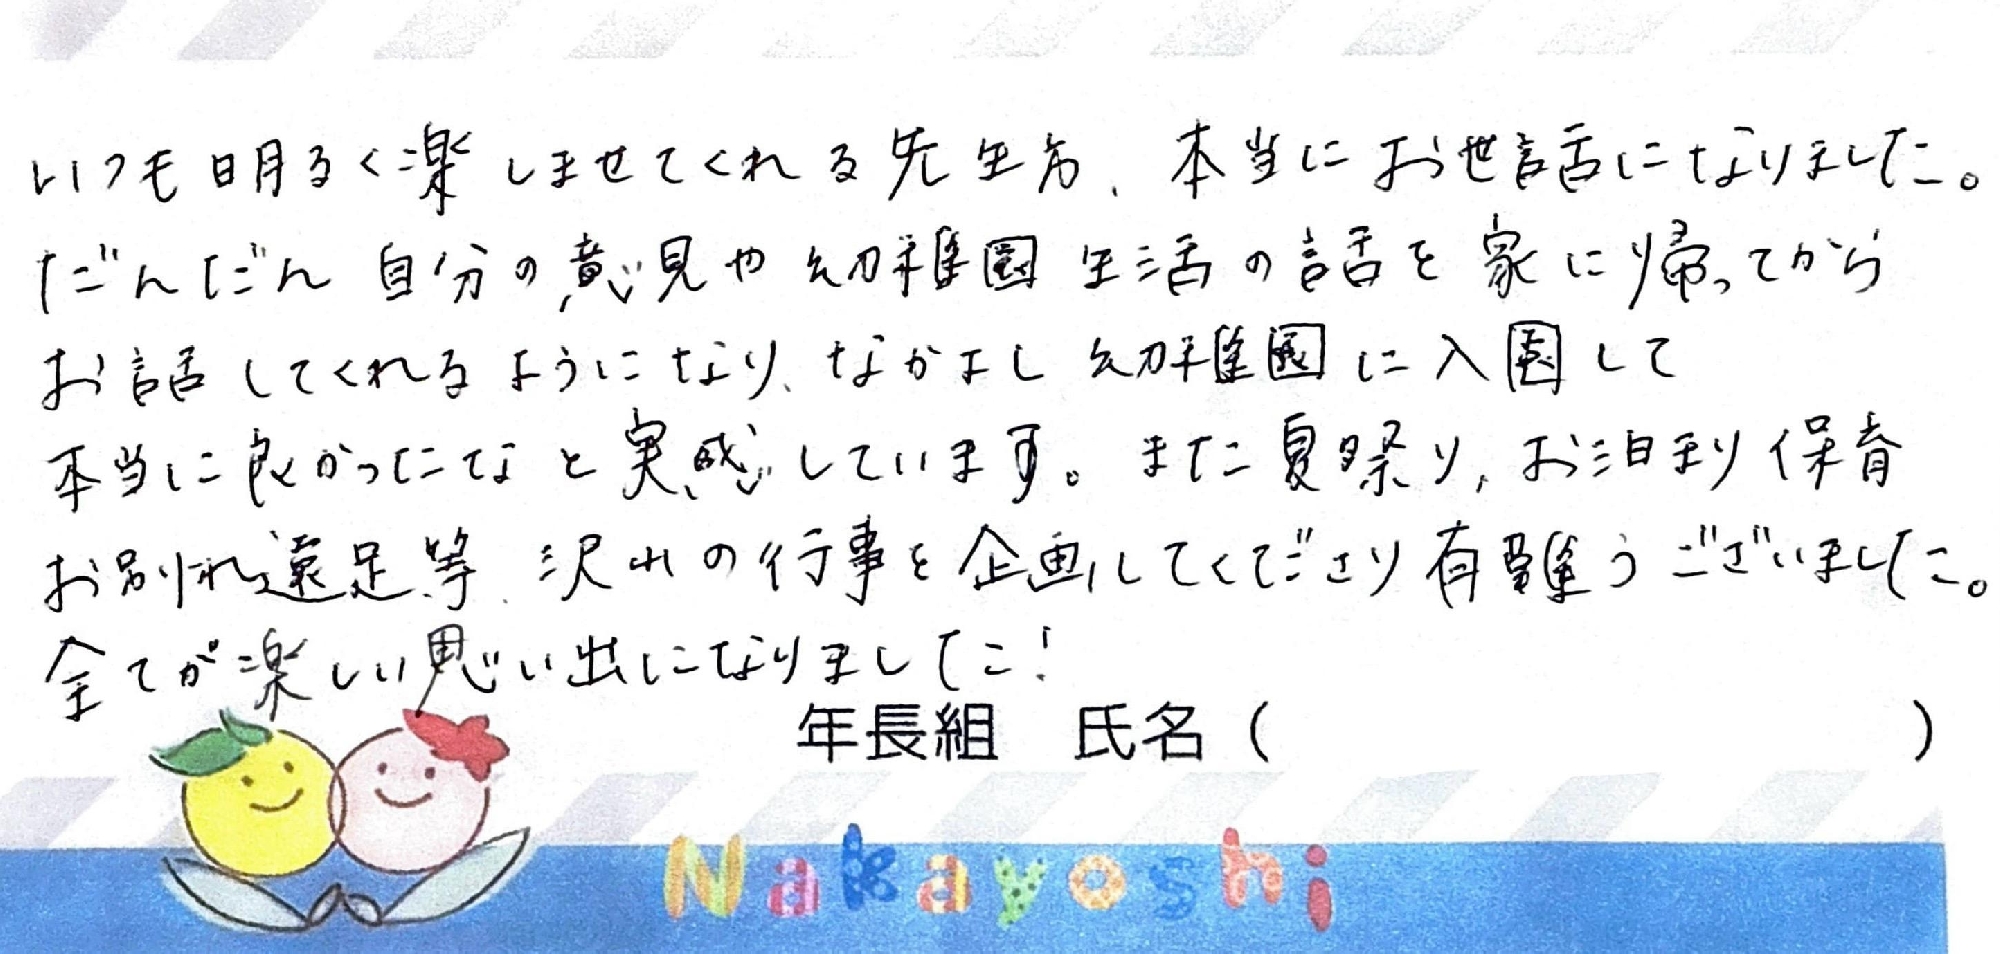 いつも明るく楽しませてくれる先生方、本当にお世話になりました。
だんだん自分の意見や幼稚園生活の話を家に帰ってから
お話してくれるようになり、なかよし幼稚園に入園して
本当に良かったなと実感しています。また夏祭り、お泊り保育
お別れ遠足等、沢山の行事を企画してくださり有難うございました。
全てが楽しい思い出になりました!
年長組 氏名( )
Nakayoshi